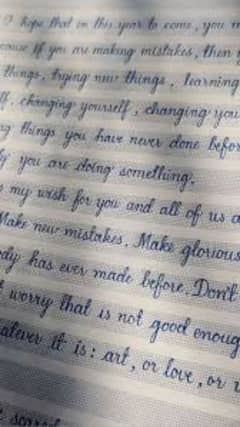 I hope that in this year to come, you m
cause if you are making mistakes, then
things, trying new things, learning
lf, changing yourself, changing you
ng things you have never done befor
ly you are doing something.
s my wish for you and all of us a
Make new mistakes. Make glorious
ody has ever made before. Don't
t worry that is not good enoug
atever it is: art, or love, or